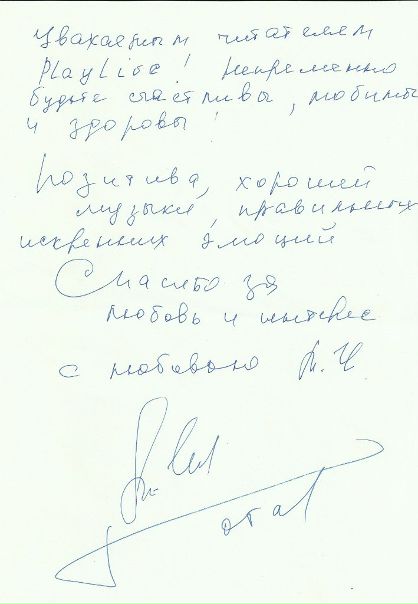 Уважаемым читателям
PlayLife! Непременно
будьте счастливы, любимы
и здоровы!
Позитива, хорошей
музыки, правильных
искренних эмоций
Спасибо за
любовь и интерес
с любовью